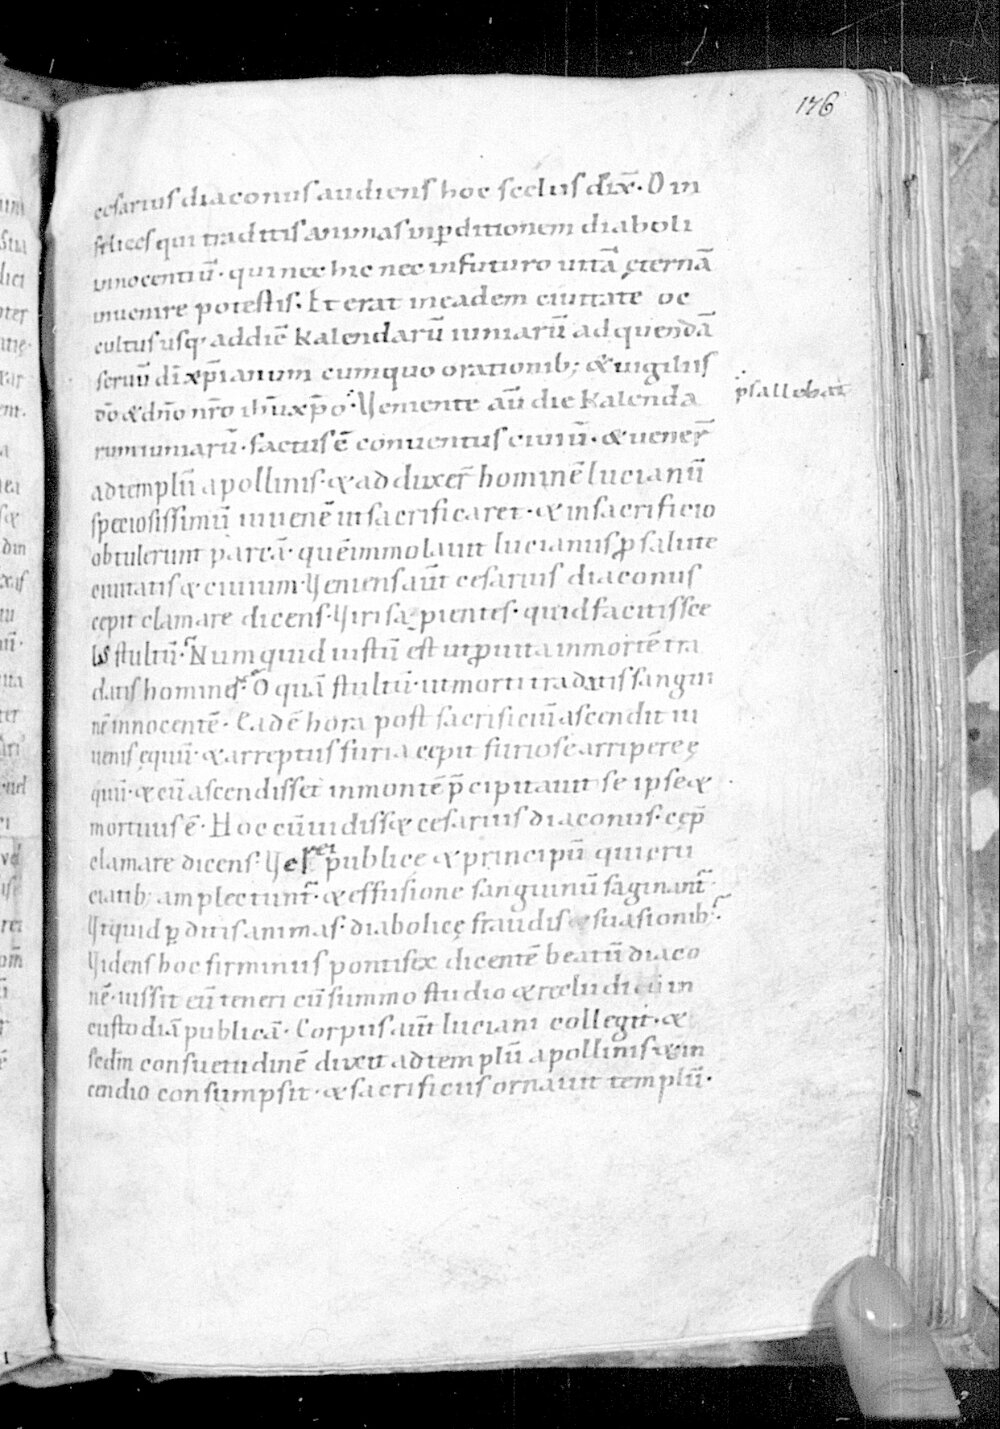 176
cesarius diaconus audiens hoc scelus dix̄. O in
felices qui traditis animas inꝑditionem diaboli
innocentiū. qui nec hic nec infuturo uitā ęternā
inuenire potestis. Et erat ineadem ciuitate oc
cultus usq; addiē kalendarū iuniarū adquendā
seruū dī xp̄ianum cumquo orationib; & uigiliis
psallebat
dō & dn̄o nr̄o ihū xp̄o. Ueniente aū die kalenda
rum iuniarū. factus ē conuentus ciuiū. & uener̄
adtemplū apollinis. & adduxer̄ hominē lucianū
speciosissimū iuuenē ut sacrificaret. & insacrificio
obtulerunt parcā. quē immolauit lucianus ꝓ salute
ciuitatis & ciuium. Ueniens aūt cesarius diaconus
cepit clamare dicens. Uiri sapientes. quid facitis sce
lus stultū. Numquid iustū est ut ꝓ uita inmortē tra
datis homines. O quā stultū. ut morti tradatis sangui
nē innocentē. Eadē hora post sacrificiū ascendit iu
uenis ęquū. & arreptus furia cepit furiose arripere ę
quū. & cū ascendisset inmontē p̄cipitauit se ipse &
mortuus ē. Hoc cū uidiss& cesarius diaconus. cęp̄
clamare dicens. Ue rei publicę & principū qui cru
ciatib; amplectunt̄. & effusione sanguinū saginant̄.
Utquid ꝑditis animas. diabolicę fraudis & suasionib;.
Uidens hoc firminus pontifex dicentē beatū diaco
nē. iussit eū teneri cū summo studio & recludi eū in
custodiā publicā. Corpus aūt luciani collegit. &
sedm̄ consuetudinē duxit adtemplū apollinis & in
cendio consumpsit. & sacrificiis ornauit templū.